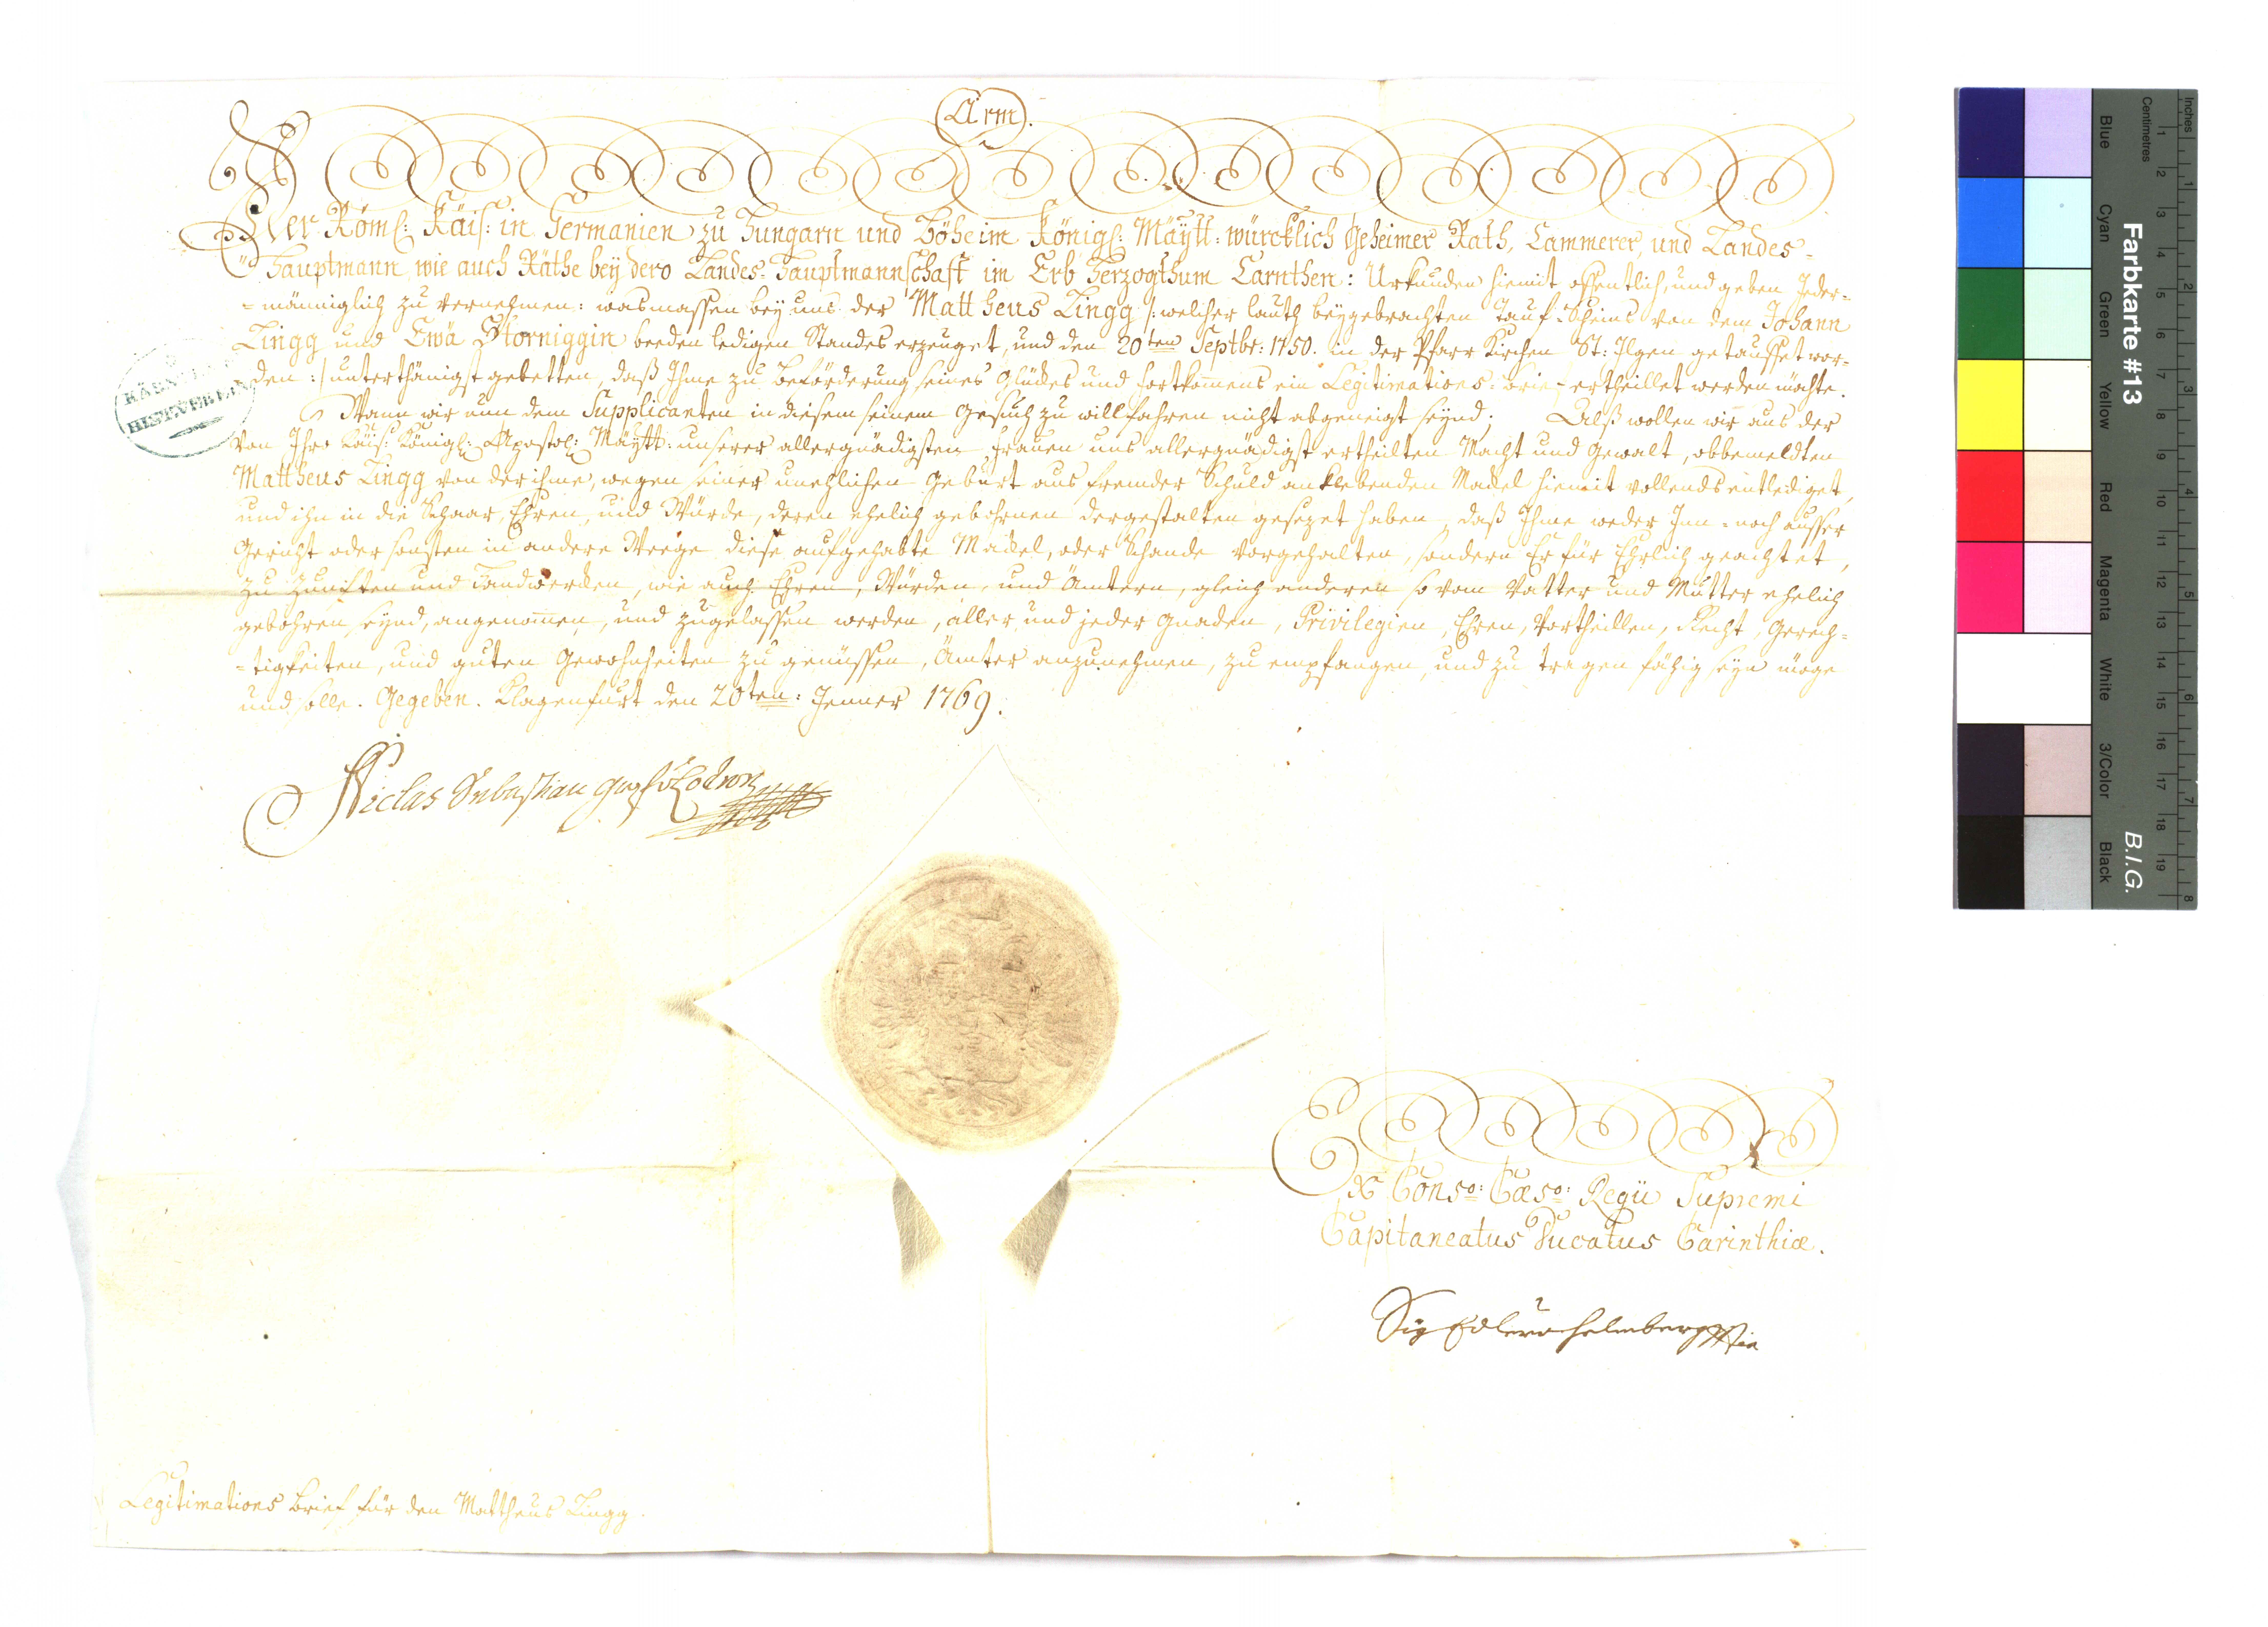 Arm.
Der Röml: Käis: in Germanien zu Hungarn und Böheim Königl: Mäytt: würcklich Geheimer Rath, Cammerer, und Landes-
Hauptmann, wie auch Räthe bey dero Landes-Hauptmannschaft im Erb Herzogthum Carnthen: Urkunden hiemit offentlich, und geben Jeder-
-männiglich zu vernehmen: wasmassen bey uns der Mattheus Zingg /: welcher lauth beygebrachten Tauf-Scheins von dem Johann
Zingg und Ewä Storniggin beeden ledigen Standes erzeuget, und den 20ten Septbr: 1750. in der Pfarr Kirchen St: Ilgen getauffet wor-
den :/ unterthänigst gebetten, daß Ihme zu beförderung seines Glückes und fortkomens ein Legitimations-brief ertheillet werden möchte.
Wann wir nun dem Supplicanten in diesem seinem Gesuch zu willfahren nicht abgeneigt seynd; Alß wollen wir aus der
von Ihro Käis: Königl: Apostol: Mäytt: unserer allergnädigsten Frauen uns allergnädigst ertheilten Macht und Gewalt, obbemeldten
Mattheus Zingg von der ihme, wegen seiner unehlichen Geburt aus fremder Schuld anklebenden Mackel hiemit vollends entlediget,
und ihn in die Schaar, Ehren, und Würde, deren ehelich gebohrnen dergestalten gesezet haben, daß Ihme weder Inn- noch ausser
Gericht oder sonsten in andere Weege diese aufgehabte Mackel, oder Schande vorgehalten, sondern Er für Ehrlich geachtet,
zu Zunften und Handwerken, wie auch Ehren, Würden, und Ämtern, gleich anderen so vom Vatter und Mutter ehelich
gebohren seynd, angenomen, und zugelassen werden, aller und jeder Gnaden, Privilegien, Ehren, Vortheillen, Recht, Gerech-
-tigkeiten, und guten Gewohnheiten zu genüssen, Ämter anzunehmen, zu empfangen, und zu tragen fähig seyn möge
und solle. Gegeben. Klagenfurt den 20ten: Jenner 1769.
Niclas Sebastian Graf v Lodron
Ex Conso: Cæso: Regio Supremi
Capitaneatus Ducatus Carinthiæ.
Legitimations brief für den Mattheus Zingg.
Farbkarte #13
B.I.G.
Inches
Centimetres
Blue
Cyan
Green
Yellow
Red
Magenta
White
3/Color
Black
1 2 3 4 5 6 7 8 9 10 11 12 13 14 15 16 17 18 19
1 2 3 4 5 6 7 8